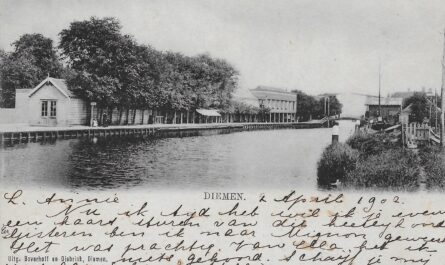 DIEMEN.
L. Annie 2 April 1902.
Nu ik tijd heb wil ik je even
een kaart sturen van die heerlijkheid
Gisteren ben ik naar Mignon geweest
Het was prachtig. Van Ella heb
Uitg. Boverhoff en Giebrich, Diemen.
niets gehoord. Schrijf je mij